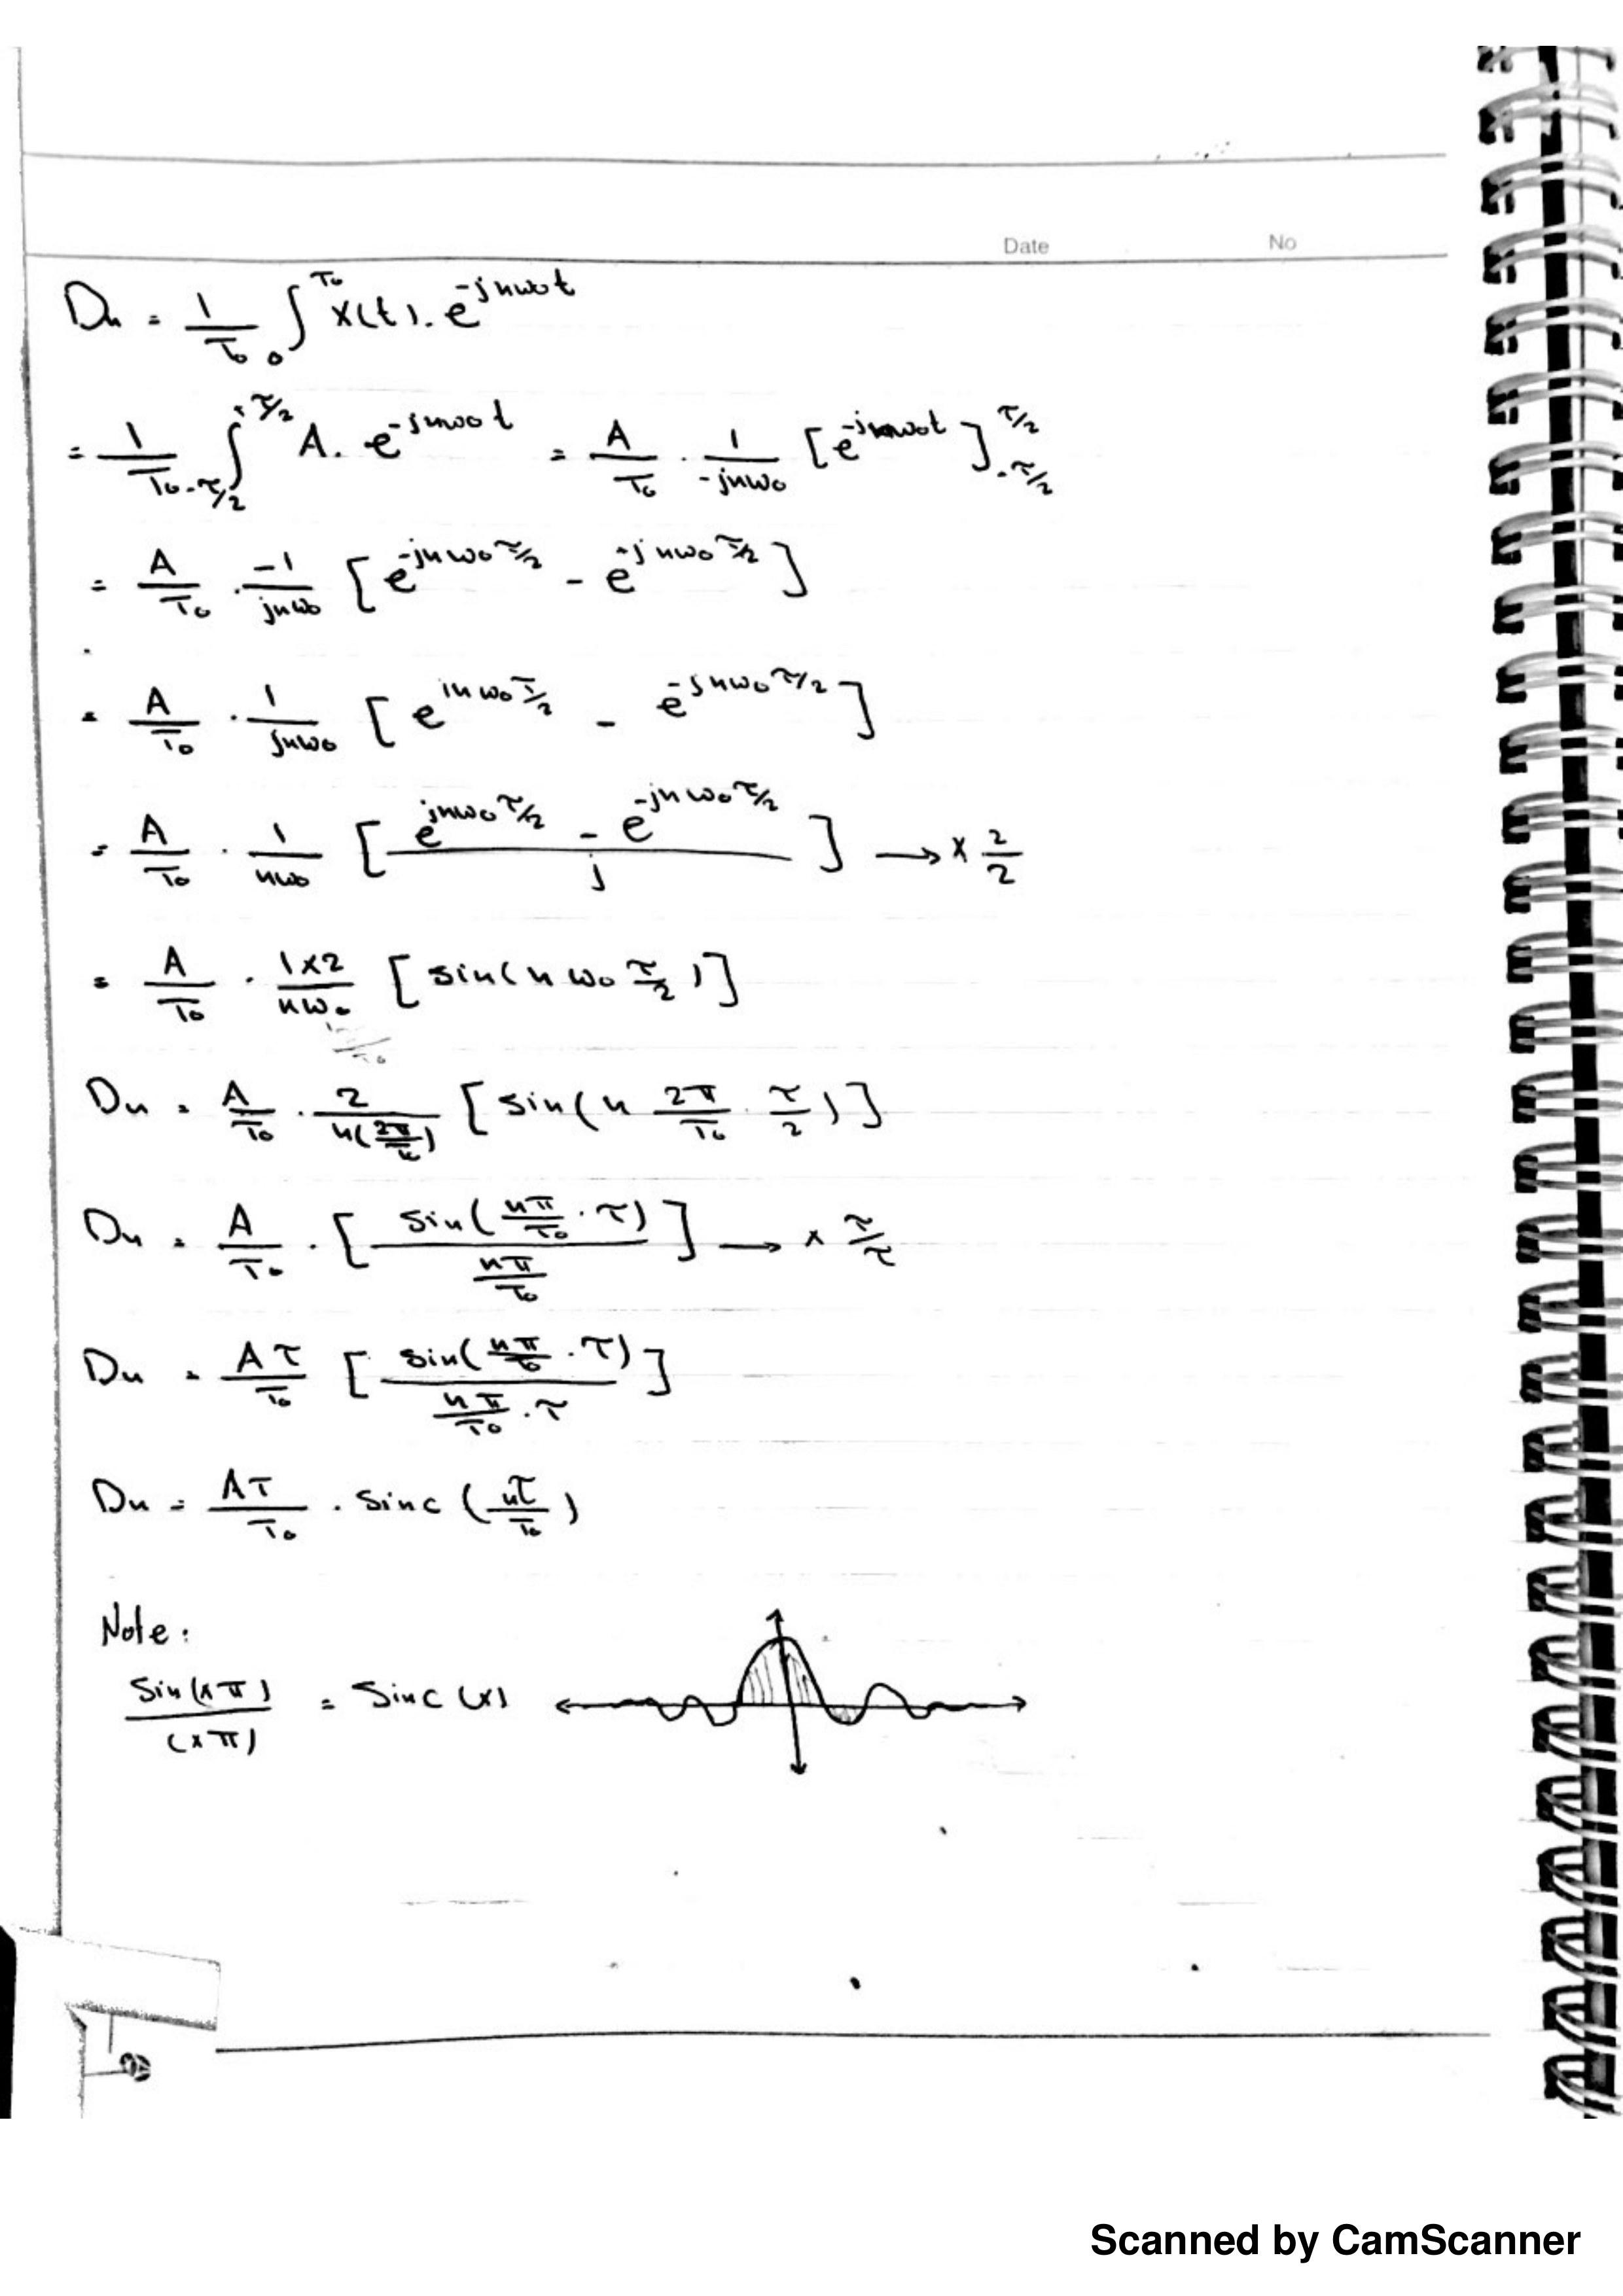 Date No
Dn = 1/T₀ ∫₀^T₀ x(t). e^-jnω₀t
= 1/T₀ ∫_-τ/2^+τ/2 A. e^-jnω₀t = A/T₀ . 1/-jnω₀ [e^-jnω₀t]_-τ/2^τ/2
= A/T₀ . -1/jnω₀ [e^-jnω₀τ/2 - e^+jnω₀τ/2]
= A/T₀ . 1/jnω₀ [e^jnω₀τ/2 - e^-jnω₀τ/2]
= A/T₀ . 1/nω₀ [(e^jnω₀τ/2 - e^-jnω₀τ/2)/j] → × 2/2
= A/T₀ . 1×2/nω₀ [sin(nω₀ τ/2)]
Dn = A/T₀ . 2/n(2π/T₀) [sin(n 2π/T₀ . τ/2)]
Dn = A/T₀ . [sin(nπ/T₀ . τ)/(nπ/T₀)] → × τ/τ
Dn = Aτ/T₀ [sin(nπ/T₀ . τ)/(nπ/T₀ . τ)]
Dn = Aτ/T₀ . sinc (nτ/T₀)
Note:
sin(xπ)/(xπ) = sinc(x)
Scanned by CamScanner